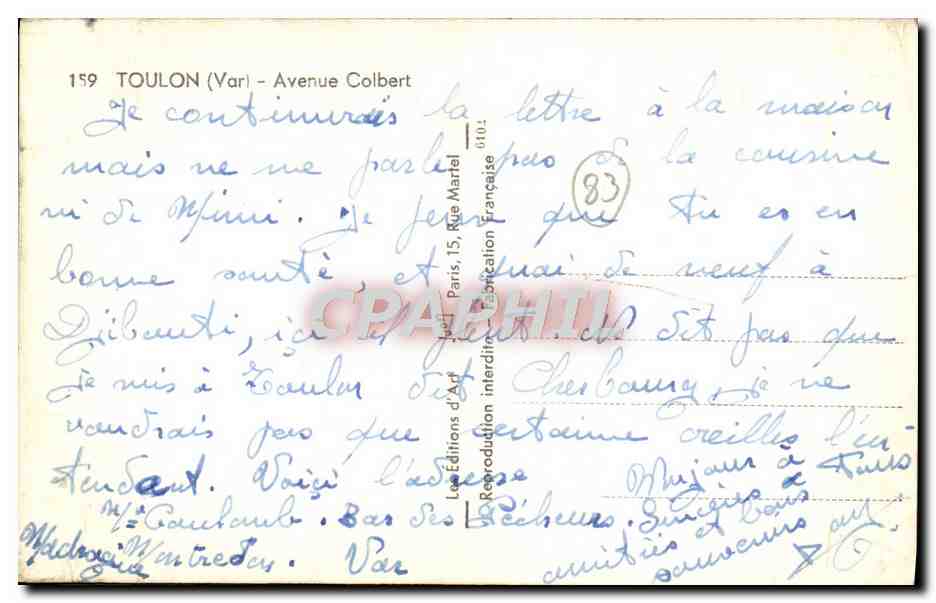 159 TOULON (Var) - Avenue Colbert
Je continurais la lettre à la maison
mais ne me parle pas de la cousine
ni de Mimi. Je pense que tu es en
bonne santé, et quoi de neuf à
Djibouti, ici il fait. Ne dit pas que
je suis à Toulon dit Cherbourg, je ne
voudrais pas que certaine oreilles l'en-
tendant. Voici l'adresse
Bar des Pêcheurs.
Montredon. Var
Bonjour à tous
Sincères
amitiés et bons
souvenirs
83
Les Éditions d'Art Paris, 15, Rue Martel
Reproduction interdite - Fabrication Française
6104
CPAPHIL